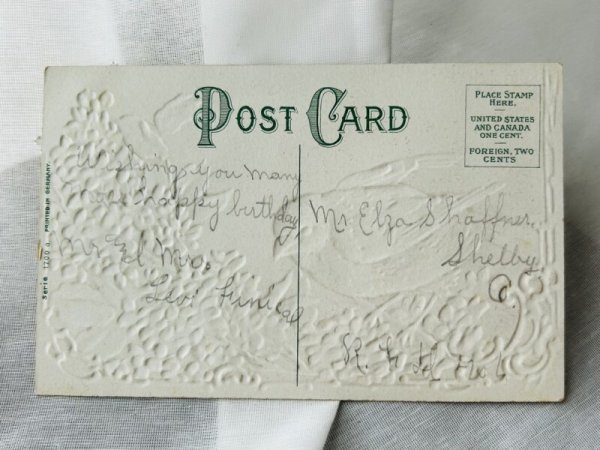 POST CARD
PLACE STAMP
HERE.
UNITED STATES
AND CANADA
ONE CENT.
FOREIGN, TWO
CENTS
Serie 1700 a. PRINTED IN GERMANY.
Wishing you many
more happy birthday
Mr & Mrs.
Levi Finical
Mr Elza Shaffner,
Shelby
O.
R.